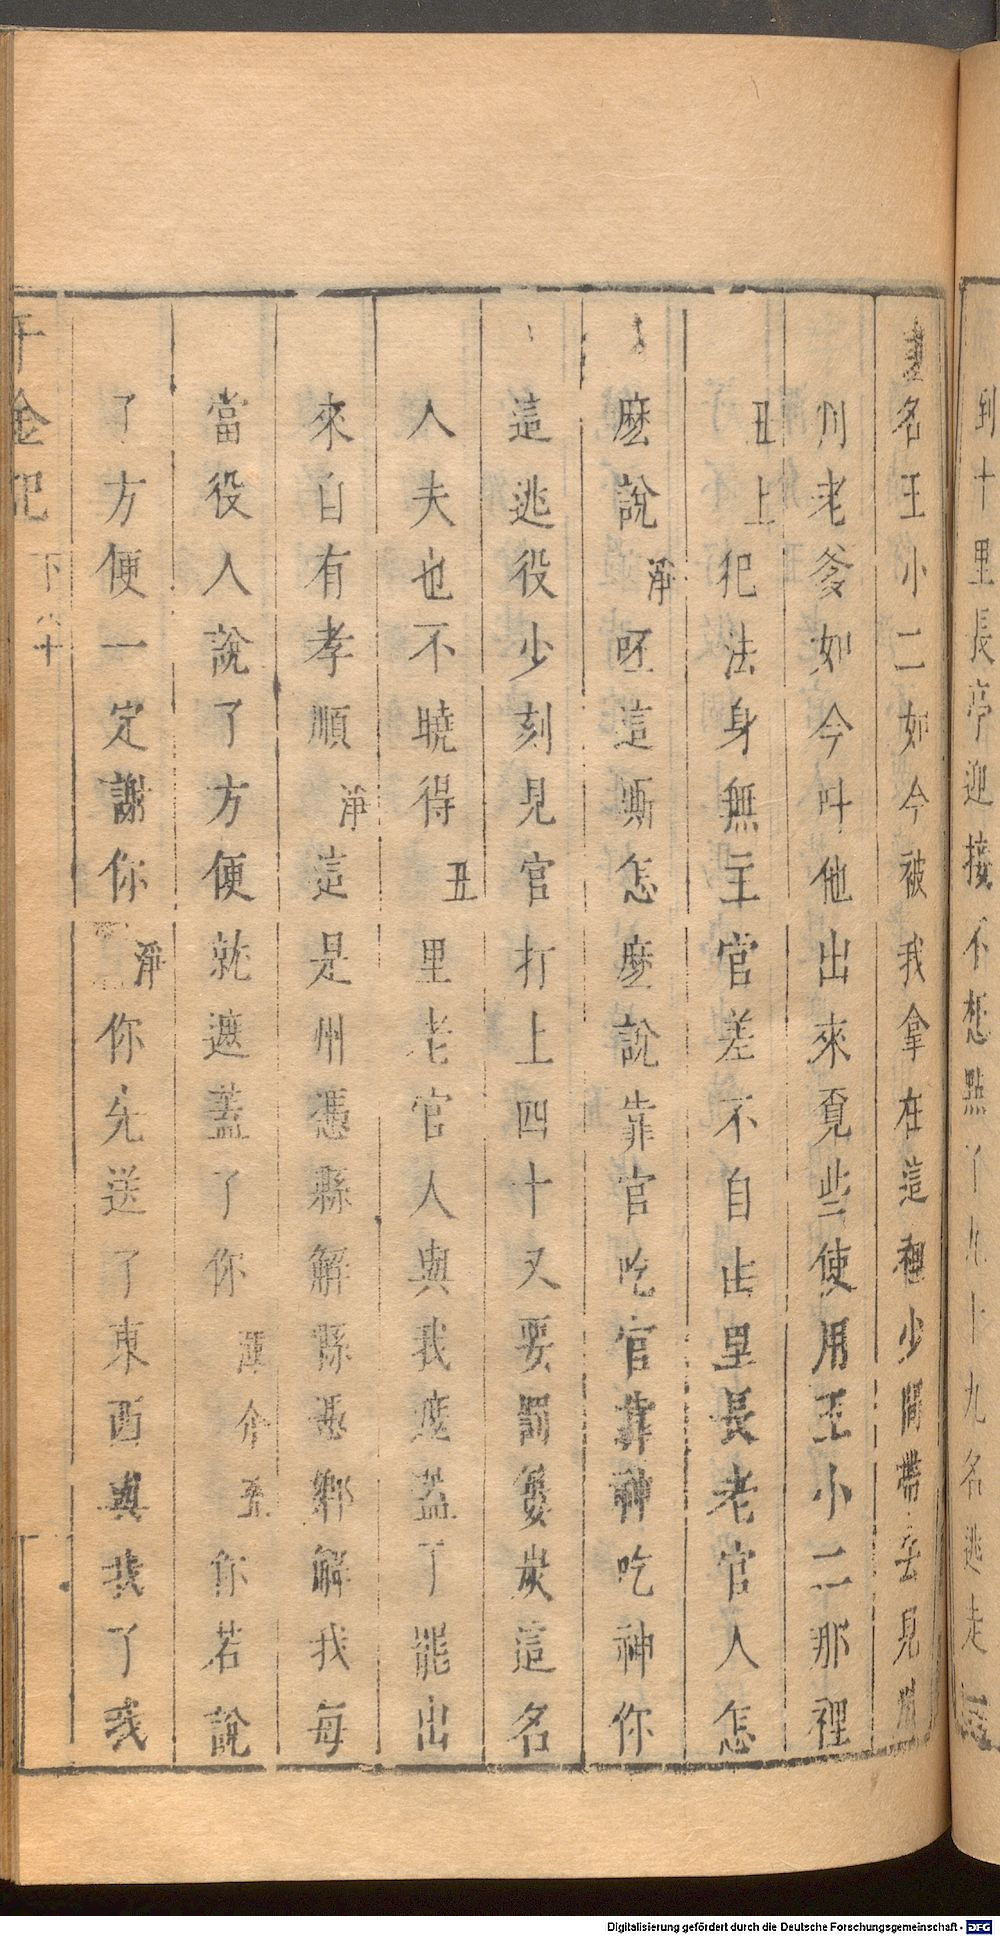 到十里長亭迎接不想點了九十九名逃走一
名王小二如今被我拿在這裡少間帶去見州
川老爹如今叶他出來覓些使用王小二那裡
丑上犯法身無主官差不自由里長老官人怎
麽說淨呸這廝怎麽說靠官吃官靠神吃神你
這逃役少刻見官打上四十又要罰㨻炭這名
人夫也不曉得丑里老官人與我遮蓋了罷出
來自有孝順淨這是州憑縣解縣憑鄉解我每
當役人說了方便就遮蓋了你渾介丑你若說
了方便一定謝你淨你先送了東西與我了我
千金記
下
Digitalisierung gefördert durch die Deutsche Forschungsgemeinschaft - DFG